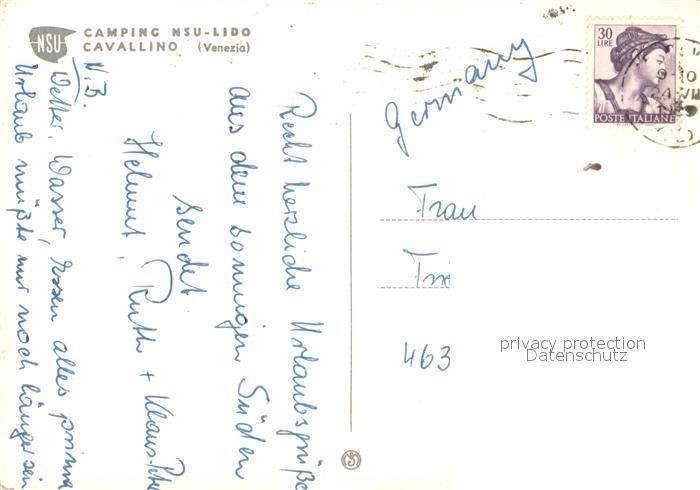 NSU
CAMPING NSU-LIDO
CAVALLINO (Venezia)
Recht herzliche Urlaubsgrüße
aus dem sonnigen Süden
sendet
Helmut, Ruth + Klaus-Peter
N.B.
Wetter, Wasser, Essen alles prima
Urlaub müßte nur noch länger sein
30
LIRE
POSTE ITALIANE
9-10
Germany
Frau
463
privacy protection
Datenschutz